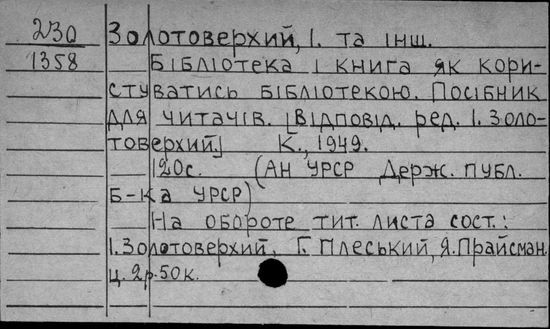 230 Золотоверхий, І. та інш.
1358 Бібліотека і книга як кори-
стуватись бібліотекою. Посібник
для читачів. [Відповід. ред. І. Золо-
товерхий] К., 1949.
120с. (АН УРСР Держ. публ.
б-ка УРСР)
На обороте тит. листа сост.:
І. Золотоверхий, Г. Плеський, Я. Прайсман.
ц. 2р.50к.